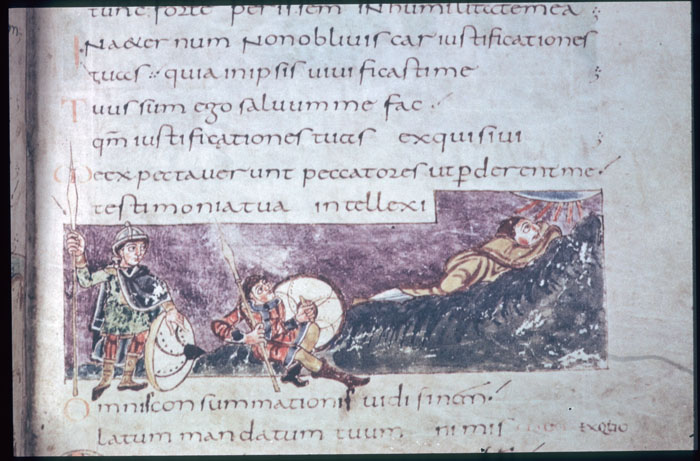 tunc forte perissem in humilitate mea
Inaeternum non obliviscar iustificationes
tuas quia in ipsis vivificasti me
Tuus sum ego salvum me fac
qm iustificationes tuas exquisivi
Me expectaverunt peccatores ut pderent me
testimonia tua intellexi
Omnis consummationis vidi finem
latum mandatum tuum nimis